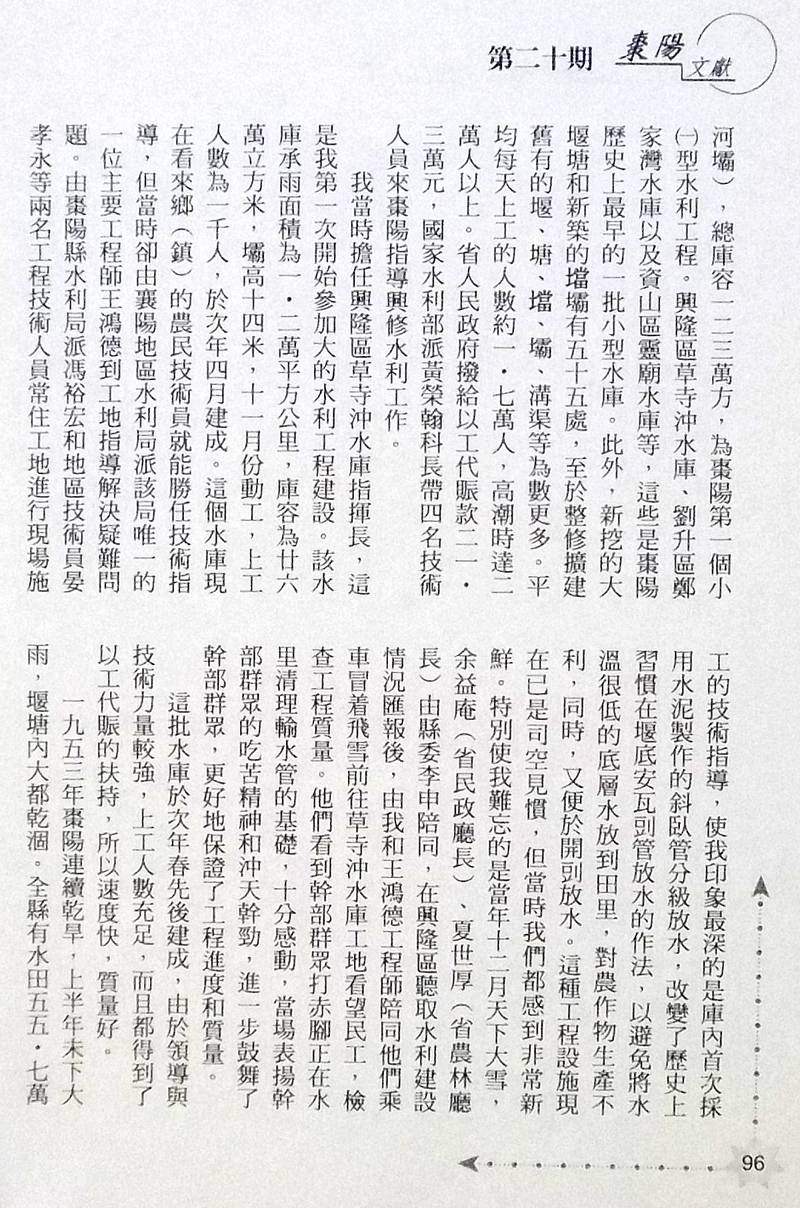 第二十期
棗陽
文獻
河壩），總庫容一二三萬方，為棗陽第一個小
㈠型水利工程。興隆區草寺沖水庫、劉升區鄭
家灣水庫以及資山區靈廟水庫等，這些是棗陽
歷史上最早的一批小型水庫。此外，新挖的大
堰塘和新築的壋壩有五十五處，至於整修擴建
舊有的堰、塘、壋、壩、溝渠等為數更多。平
均每天上工的人數約一・七萬人，高潮時達二
萬人以上。省人民政府撥給以工代賑款二一・
三萬元，國家水利部派黃榮翰科長帶四名技術
人員來棗陽指導興修水利工作。
我當時擔任興隆區草寺沖水庫指揮長，這
是我第一次開始參加大的水利工程建設。該水
庫承雨面積為一・二萬平方公里，庫容為廿六
萬立方米，壩高十四米，十一月份動工，上工
人數為一千人，於次年四月建成。這個水庫現
在看來鄉（鎮）的農民技術員就能勝任技術指
導，但當時卻由襄陽地區水利局派該局唯一的
一位主要工程師王鴻德到工地指導解決疑難問
題。由棗陽縣水利局派馮裕宏和地區技術員晏
孝永等兩名工程技術人員常住工地進行現場施
工的技術指導，使我印象最深的是庫內首次採
用水泥製作的斜臥管分級放水，改變了歷史上
習慣在堰底安瓦剅管放水的作法，以避免將水
溫很低的底層水放到田里，對農作物生產不
利，同時，又便於開剅放水。這種工程設施現
在已是司空見慣，但當時我們都感到非常新
鮮。特別使我難忘的是當年十二月天下大雪，
余益庵（省民政廳長）、夏世厚（省農林廳
長）由縣委李申陪同，在興隆區聽取水利建設
情況匯報後，由我和王鴻德工程師陪同他們乘
車冒着飛雪前往草寺沖水庫工地看望民工，檢
查工程質量。他們看到幹部群眾打赤腳正在水
里清理輸水管的基礎，十分感動，當場表揚幹
部群眾的吃苦精神和沖天幹勁，進一步鼓舞了
幹部群眾，更好地保證了工程進度和質量。
這批水庫於次年春先後建成，由於領導與
技術力量較強，上工人數充足，而且都得到了
以工代賑的扶持，所以速度快，質量好。
一九五三年棗陽連續乾旱，上半年未下大
雨，堰塘內大都乾涸。全縣有水田五五・七萬
96